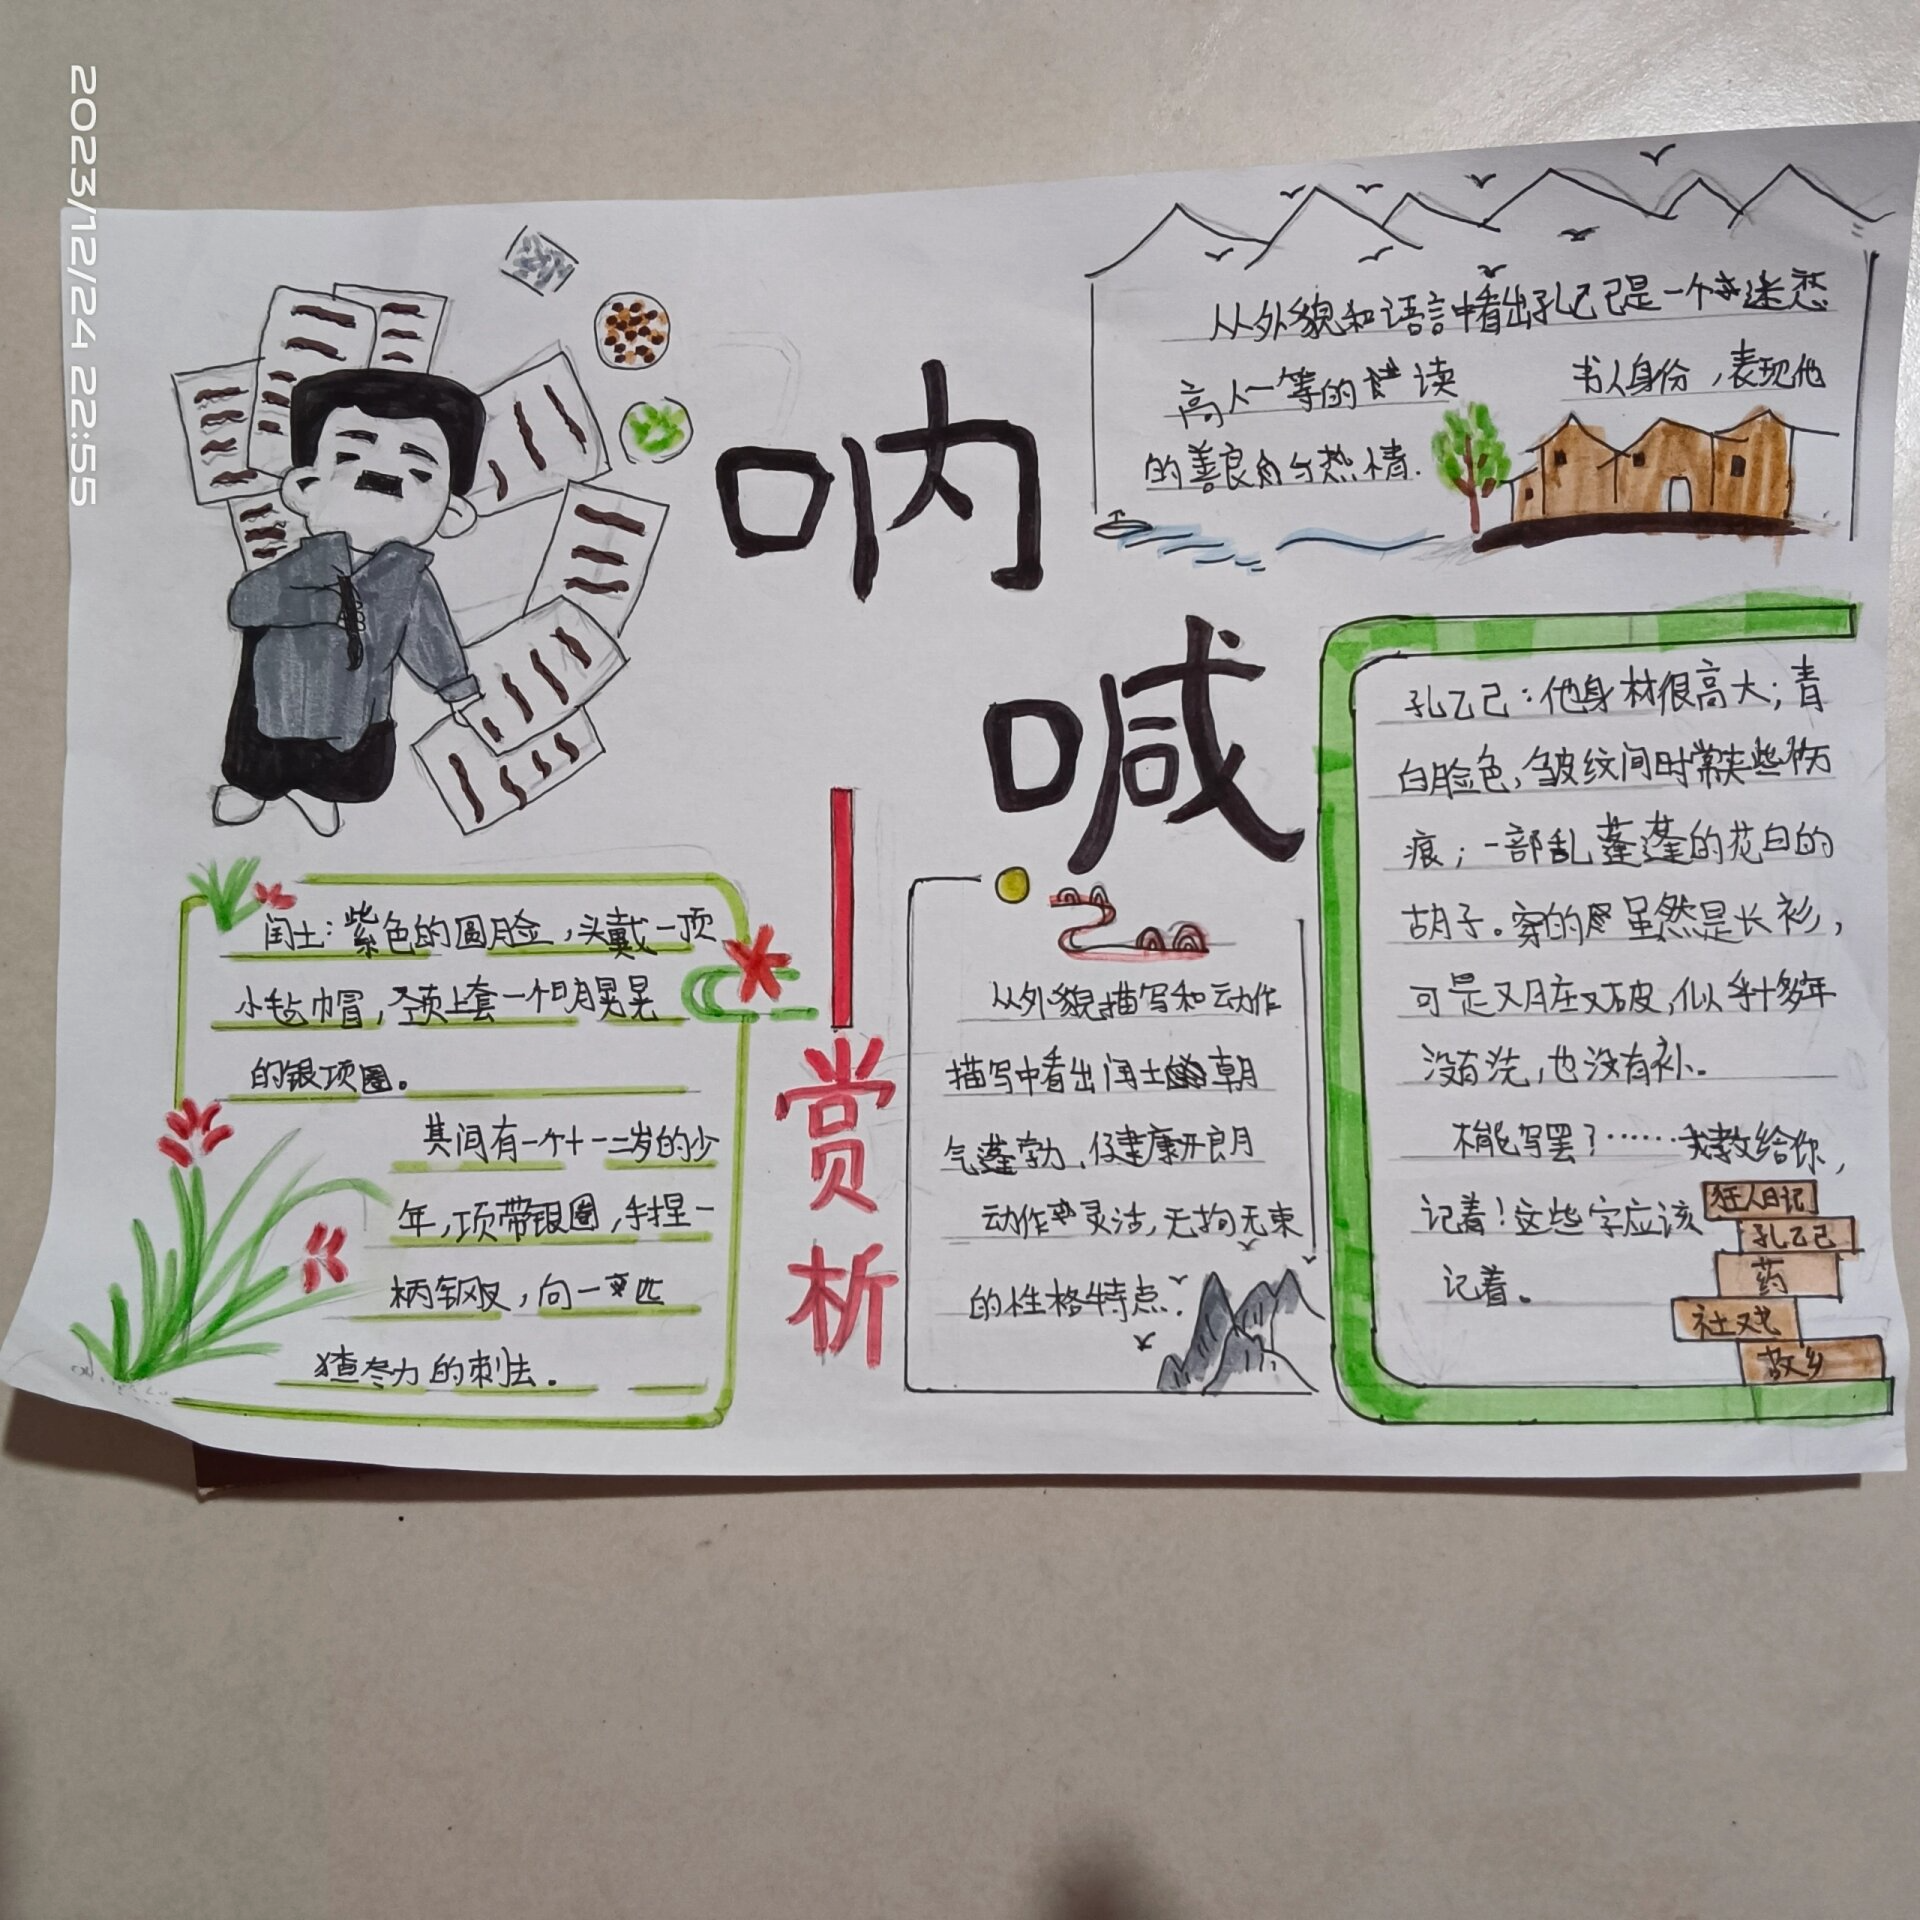 2023/12/24 22:55
呐
喊
赏
析
从外貌和语言中看出孔乙己是一个迷恋
高人一等的读 书人身份，表现他
的善良与热情.
闰土：紫色的圆脸，头戴一顶
小毡帽，颈上套一个明晃晃
的银项圈。
其间有一个十一二岁的少
年，项带银圈，手捏一
柄钢叉，向一匹
猹尽力的刺去。
从外貌描写和动作
描写中看出闰土朝
气蓬勃、健康开朗
动作灵活，无拘无束
的性格特点.
孔乙己：他身材很高大；青
白脸色，皱纹间时常夹些伤
痕；一部乱蓬蓬的花白的
胡子。穿的虽然是长衫，
可是又脏又破，似乎十多年
没有洗，也没有补。
不能写罢？……我教给你，
记着！这些字应该
记着。
狂人日记
孔乙己
药
社戏
故乡